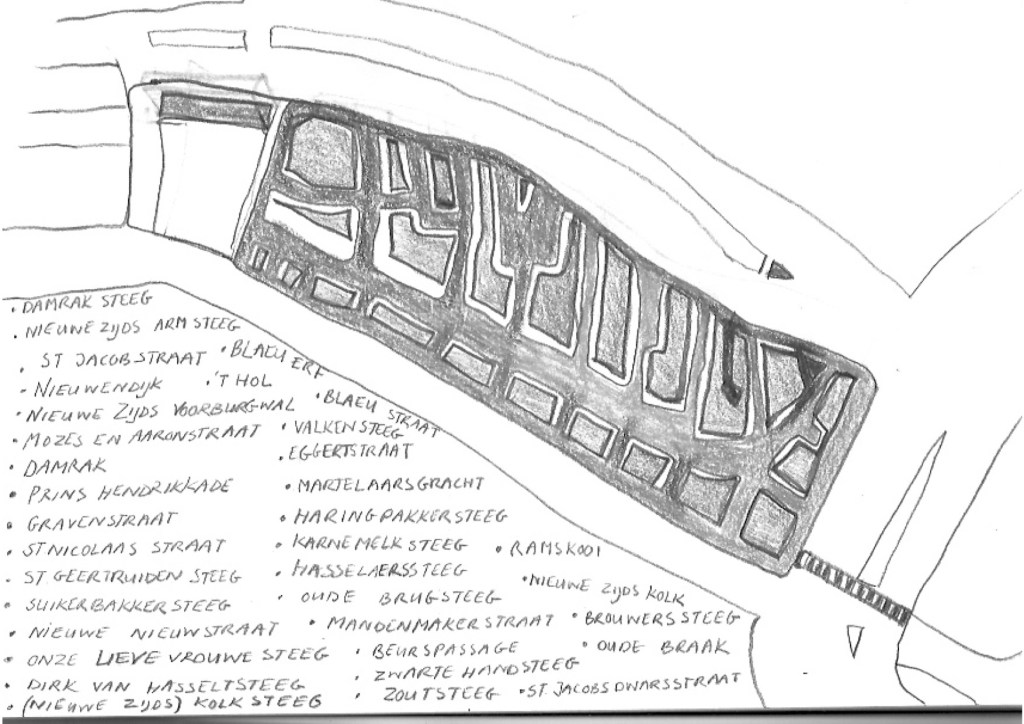 • DAMRAK STEEG
• NIEUWE ZIJDS ARM STEEG
• ST JACOBSTRAAT • BLAEU ERF
- NIEUWENDIJK • 'T HOL
• NIEUWE ZIJDS VOORBURGWAL • BLAEU STRAAT
• MOZES EN AARONSTRAAT • VALKENSTEEG
• DAMRAK • EGGERTSTRAAT
• PRINS HENDRIKKADE • MARTELAARSGRACHT
• GRAVENSTRAAT • HARINGPAKKERSTEEG
• ST NICOLAAS STRAAT • KARNEMELKSTEEG • RAMSKOOI
• ST GEERTRUIDEN STEEG • HASSELAERSSTEEG
• SUIKERBAKKERSTEEG • OUDE BRUGSTEEG • NIEUWE ZIJDS KOLK
• NIEUWE NIEUWSTRAAT • MANDENMAKERSTRAAT • BROUWERSSTEEG
• ONZE LIEVE VROUWE STEEG • BEURSPASSAGE • OUDE BRAAK
• DIRK VAN HASSELTSTEEG • ZWARTE HANDSTEEG
• (NIEUWE ZIJDS) KOLK STEEG • ZOUTSTEEG • ST. JACOBSDWARSSTRAAT